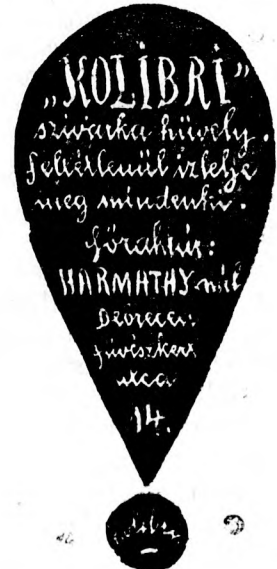 „KOLIBRI"
szivarka hüvely.
feltétlenül izlelje
meg mindenki.
főraktár:
HARMATHY-nál
Debrecen
füvészkert
utca
14.